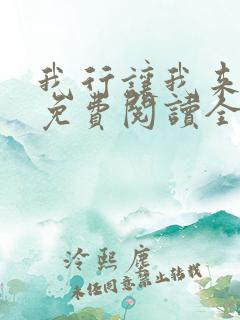 我行讓我来
免費閱讀全
泠熙塵
未经同意禁止转载